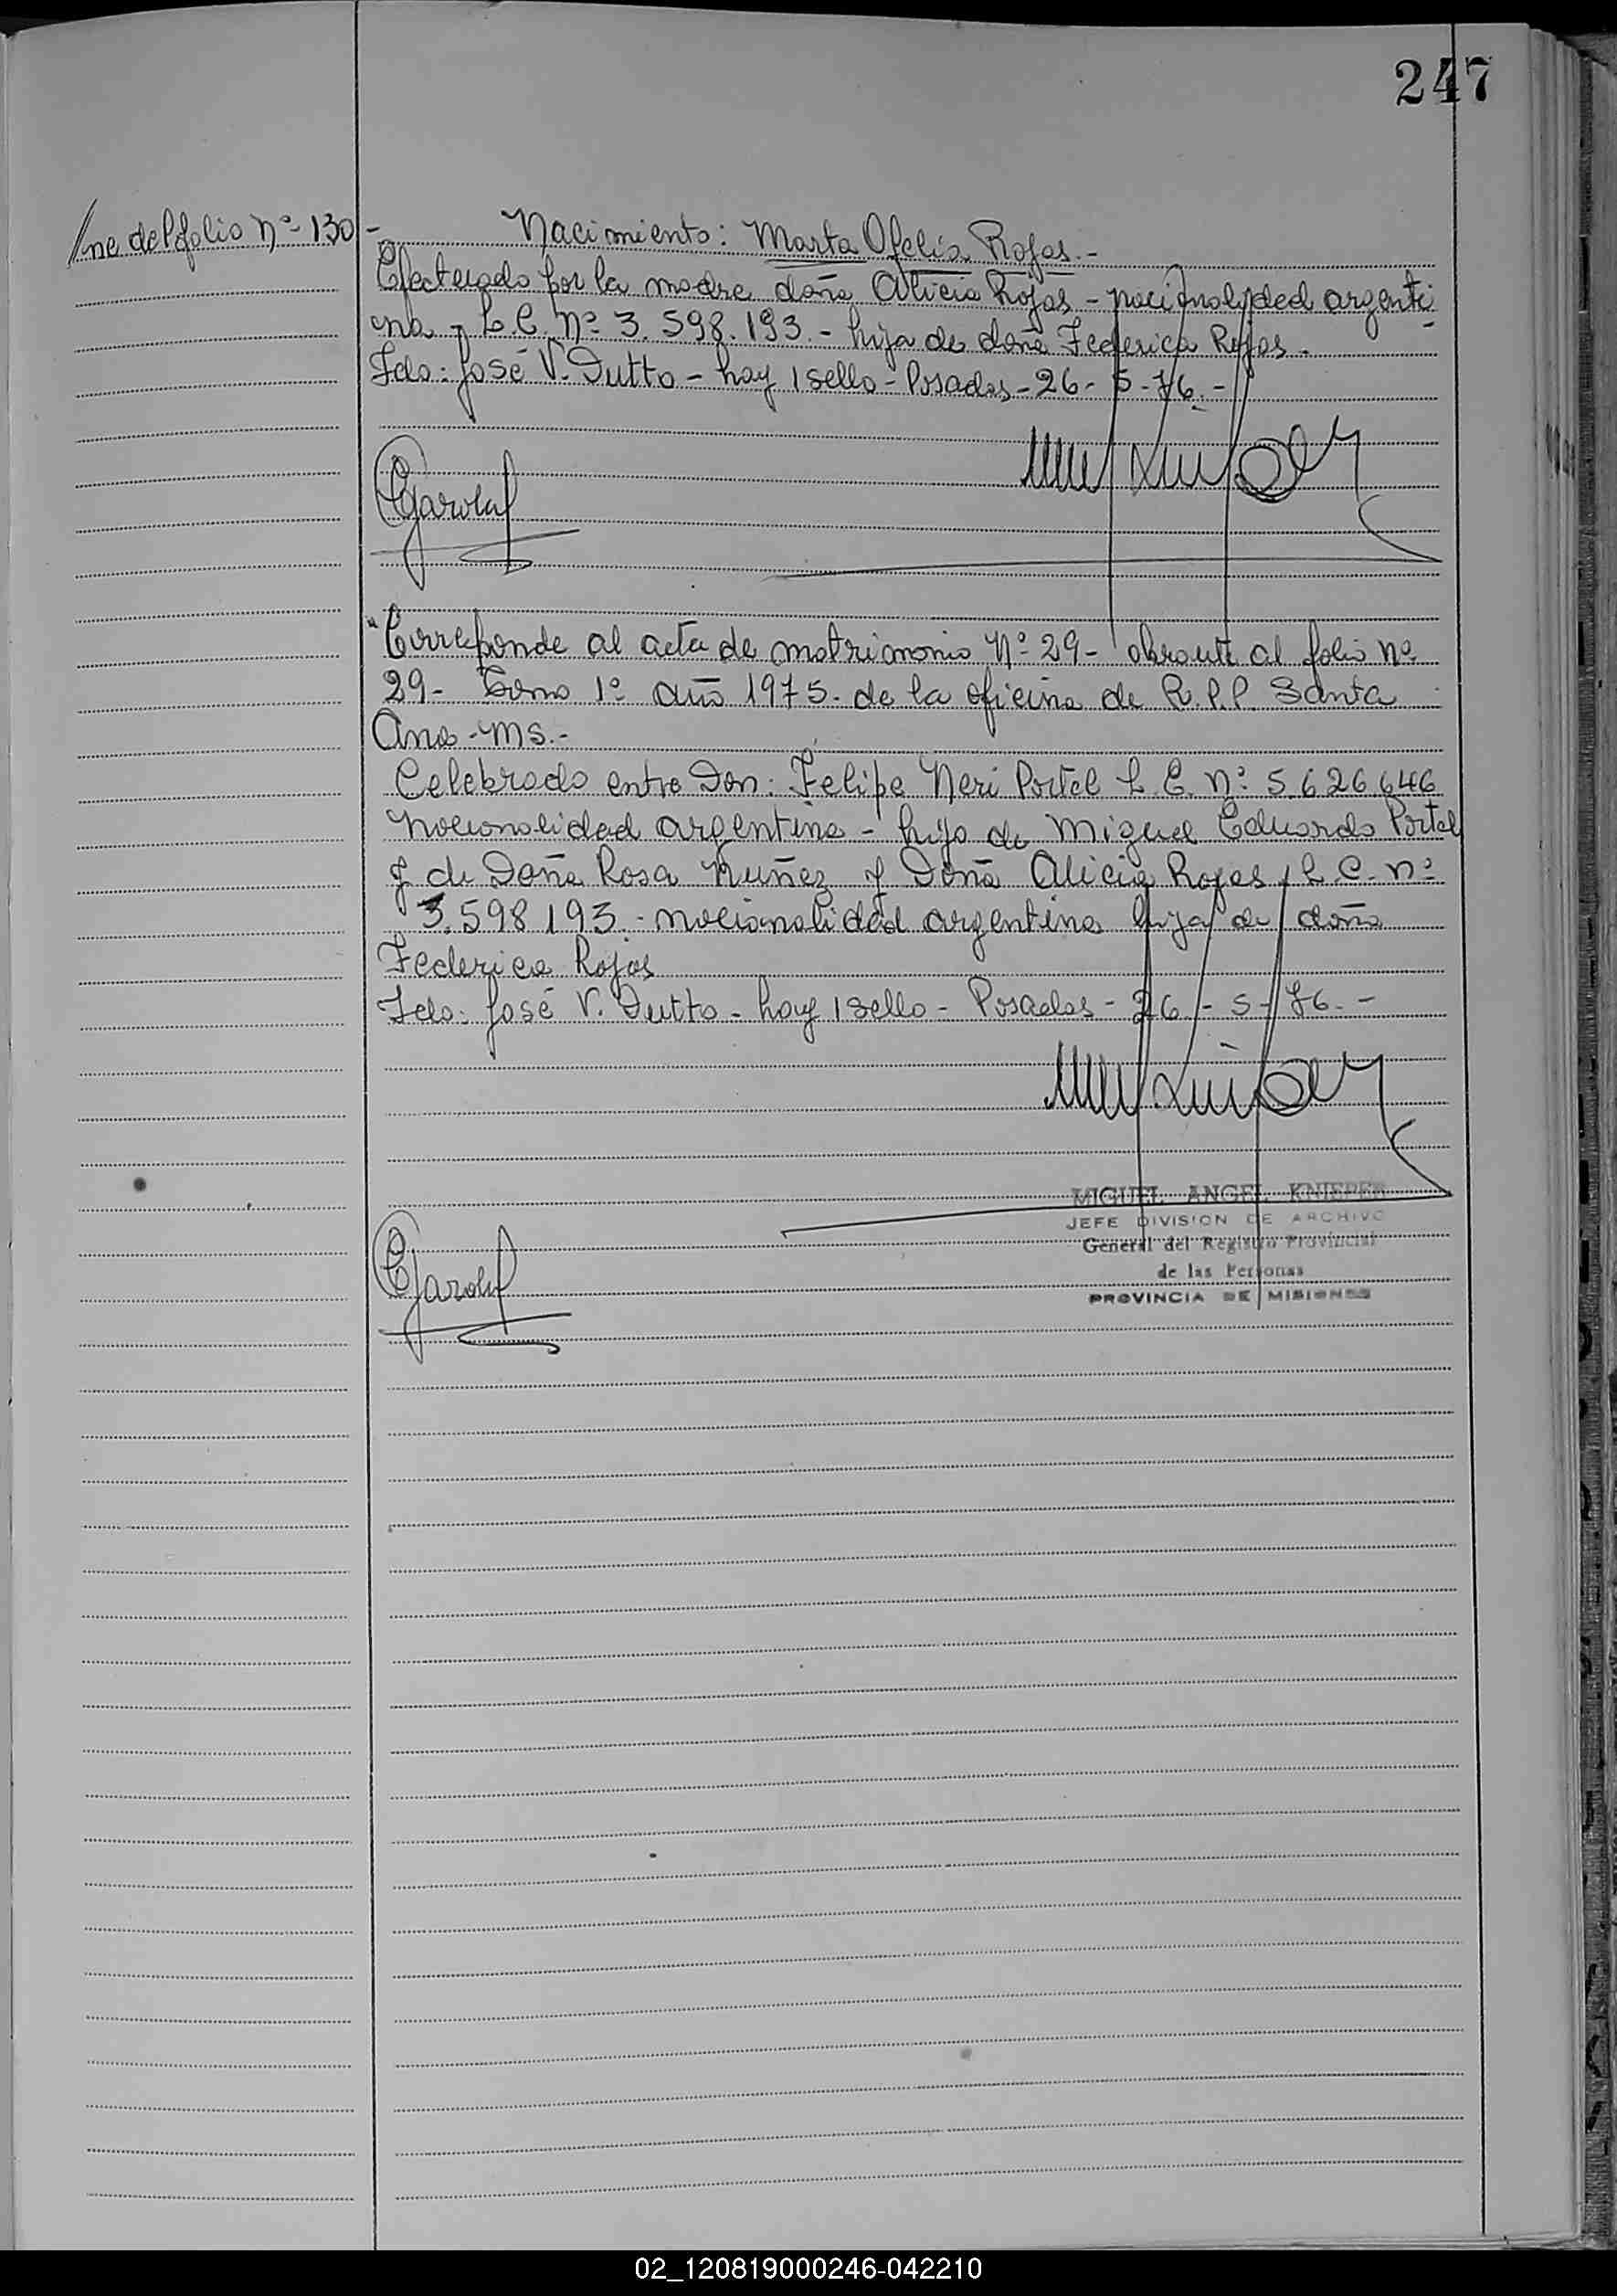 247
/ne del folio Nº 130 -
Nacimiento: Marta Ofelia Rojas.-
Efectuado por la madre doña Alicia Rojas - nacionalidad argenti
na - L.C. Nº 3.598.193.- hija de doña Federica Rojas.
Fdo: José V. Dutto - hay 1 sello - Posadas - 26 - 5 - 76.-
"Correponde al acta de matrimonio Nº 29 - obrante al folio Nº
29 - Tomo 1º año 1975. de la oficina de R.P.P. Santa
Ana - Ms.-
Celebrado entre Don: Felipe Neri Portel L.E. Nº 5.626.646
nacionalidad argentina - hijo de Miguel Eduardo Portel
y de Doña Rosa Nuñez y Doña Alicia Rojas L.C. Nº
3.598.193.- nacionalidad argentina hija de doña
Federica Rojas
Fdo: José V. Dutto - hay 1 sello - Posadas - 26 - 5 - 76.-
MIGUEL ANGEL KNIEPER
JEFE DIVISION DE ARCHIVO
General del Registro Provincial
de las Personas
PROVINCIA DE MISIONES
02_120819000246-042210